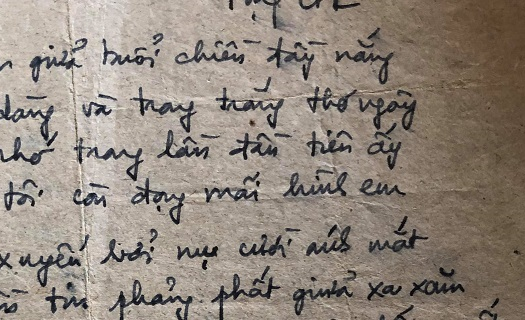 giữa buổi chiều đầy nắng
dàng và trang trắng thơ ngây
nhớ trong lần đầu tiên ấy
tôi còn đọng mãi hình em
xuyến bởi nụ cười ánh mắt
tim phảng phất giữa xa xăm